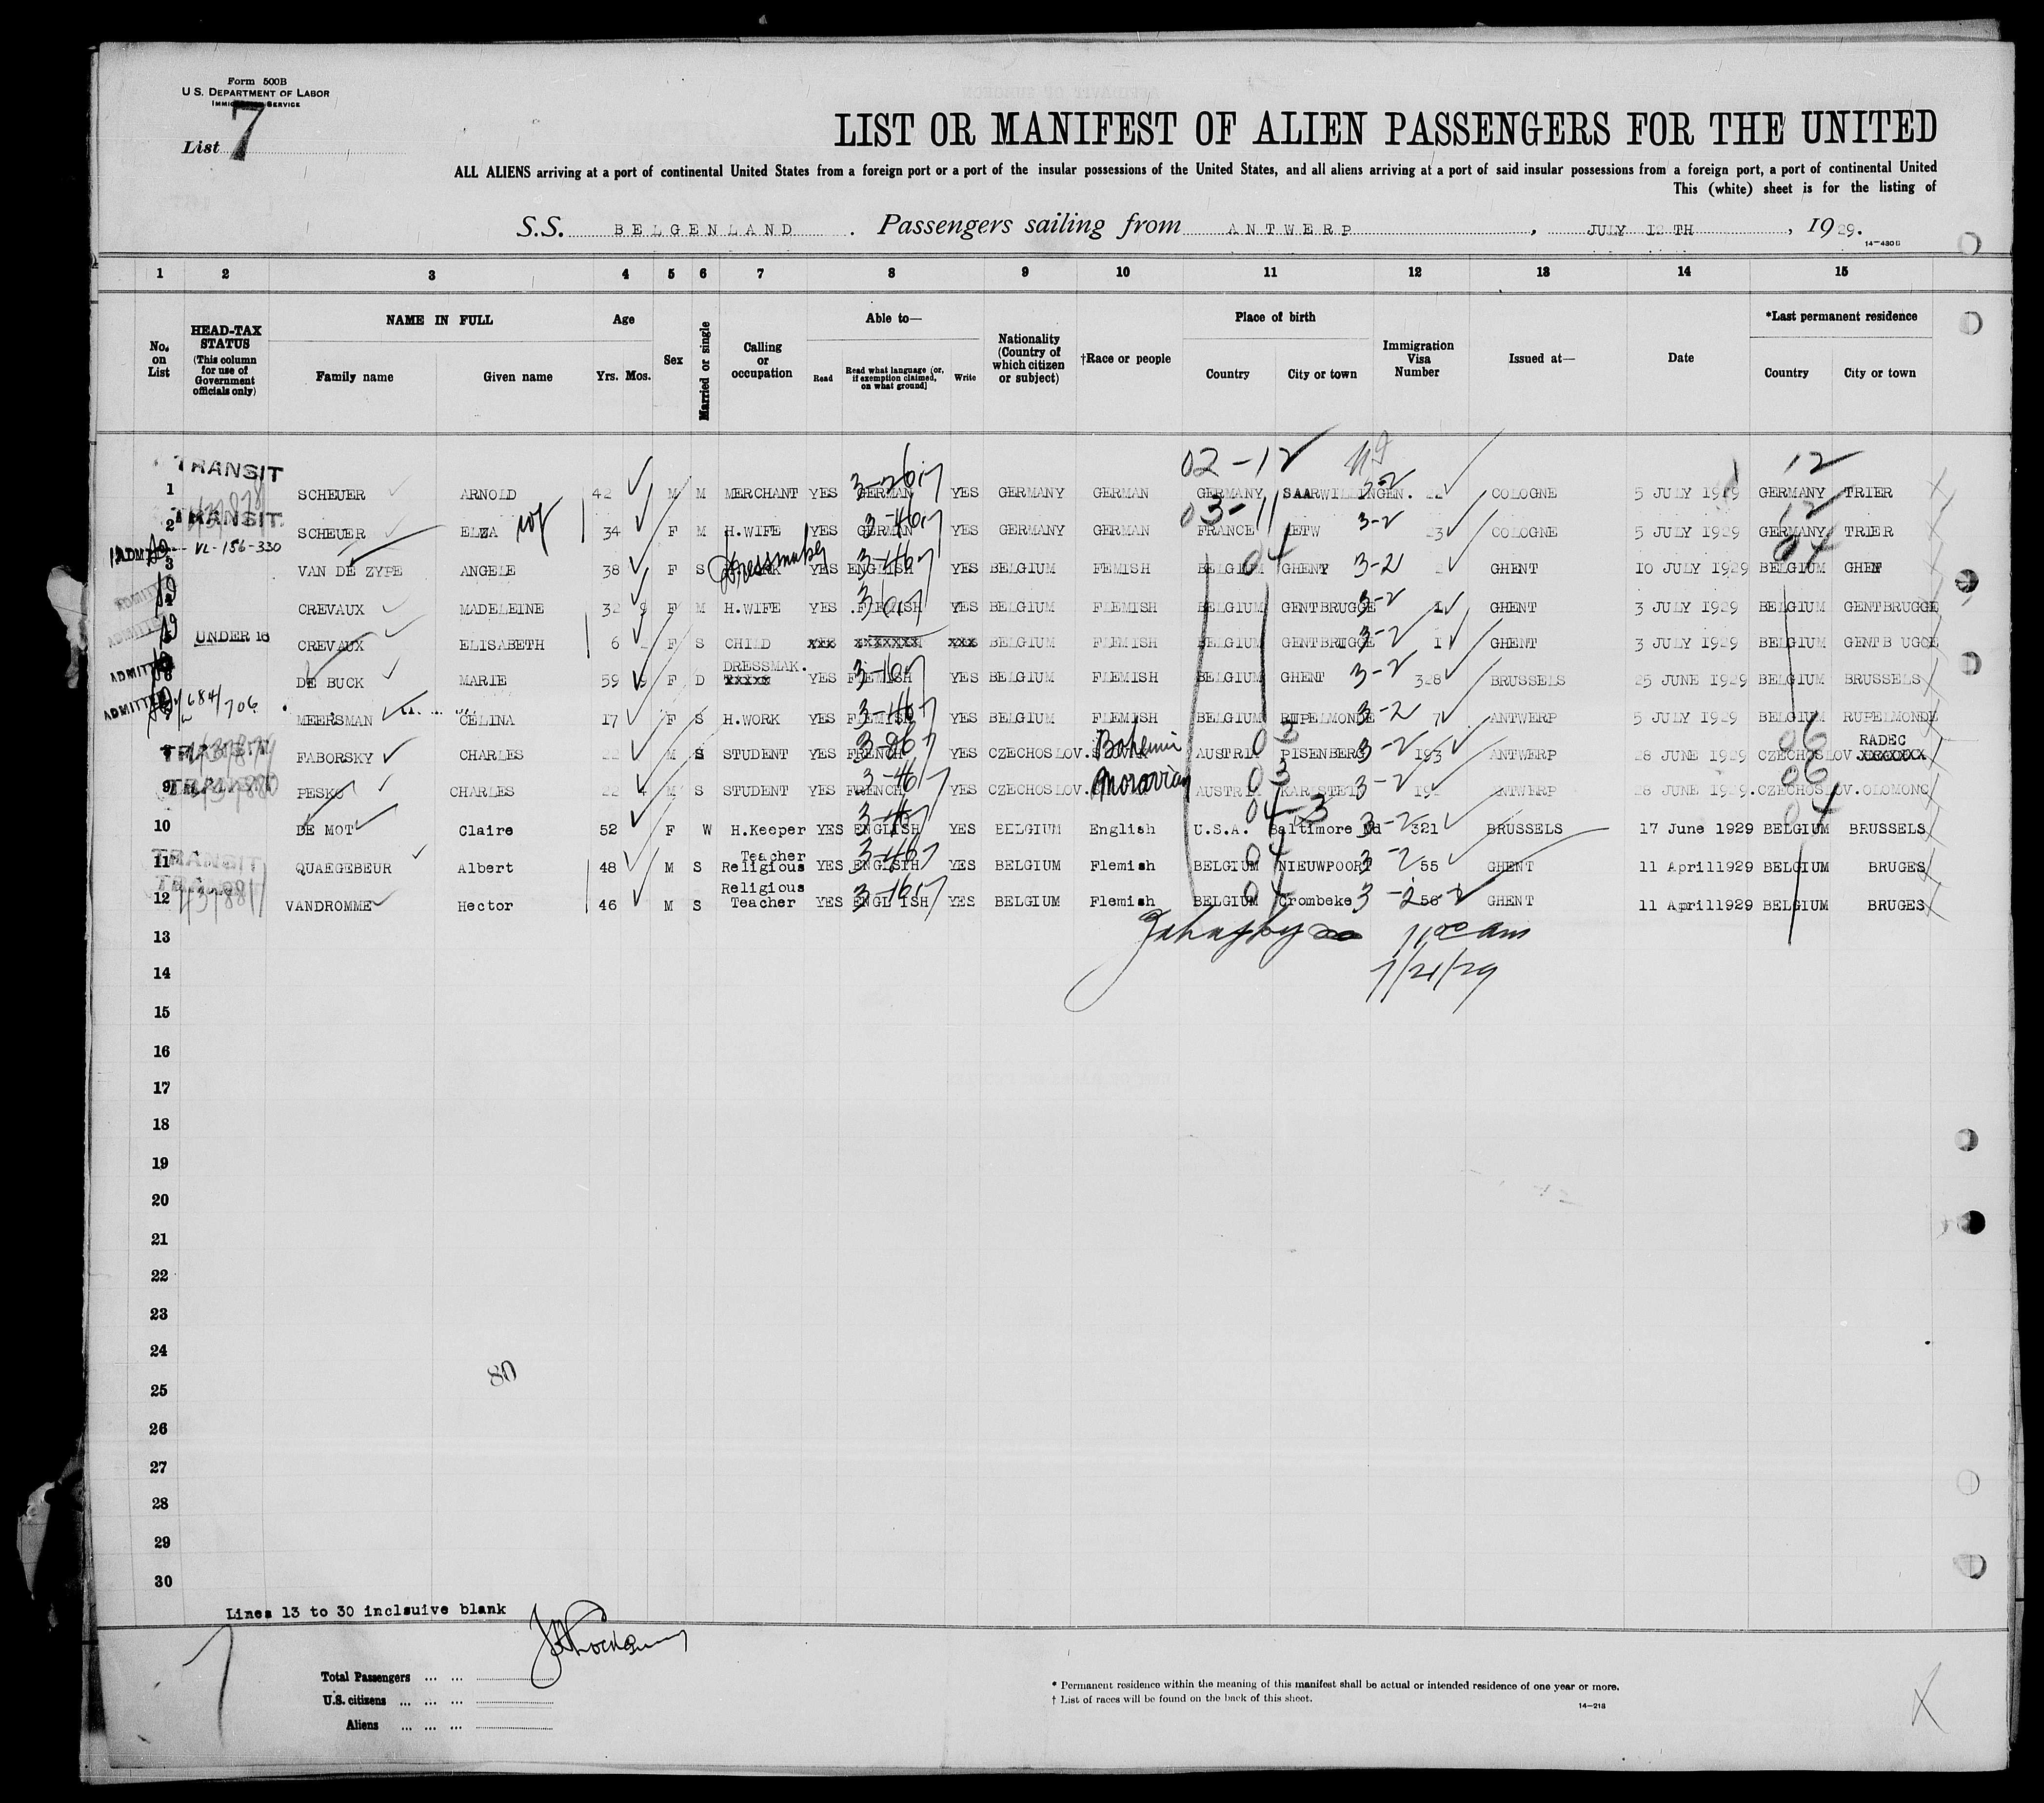 Form 500B
U. S. DEPARTMENT OF LABOR
IMMIGRATION SERVICE
List 7
LIST OR MANIFEST OF ALIEN PASSENGERS FOR THE UNITED
ALL ALIENS arriving at a port of continental United States from a foreign port or a port of the insular possessions of the United States, and all aliens arriving at a port of said insular possessions from a foreign port, a port of continental United
This (white) sheet is for the listing of
S.S. BELGENLAND. Passengers sailing from ANTWERP, JULY 12TH, 1929.
14-430B
1 2 3 4 5 6 7 8 9 10 11 12 13 14 15
No. on List
HEAD-TAX STATUS (This column for use of Government officials only)
NAME IN FULL
Family name Given name
Age
Yrs. Mos.
Sex
Married or single
Calling or occupation
Able to—
Read Read what language [or, if exemption claimed, on what ground] Write
Nationality (Country of which citizen or subject)
†Race or people
Place of birth
Country City or town
Immigration Visa Number
Issued at—
Date
*Last permanent residence
Country City or town
02-12 12
TRANSIT
1 SCHEUER ARNOLD 42 M M MERCHANT YES GERMAN YES GERMANY GERMAN GERMANY SAARWILLINGEN. 3-2 COLOGNE 5 JULY 1929 GERMANY TRIER
TRANSIT 03-11 12
2 SCHEUER ELZA wf 34 F M H.WIFE YES GERMAN YES GERMANY GERMAN FRANCE 3-2 23 COLOGNE 5 JULY 1929 GERMANY TRIER
VL-156-330 Dressmaker 04
3 VAN DE ZYPE ANGELE 38 F S YES ENGLISH YES BELGIUM FEMISH BELGIUM GHENT 3-2 GHENT 10 JULY 1929 BELGIUM GHENT
4 CREVAUX MADELEINE 32 9 F M H.WIFE YES FLEMISH YES BELGIUM FLEMISH BELGIUM GENTBRUGGE 3-2 GHENT 3 JULY 1929 BELGIUM GENTBRUGGE
5 UNDER 16 CREVAUX ELISABETH 6 F S CHILD BELGIUM FLEMISH BELGIUM GENTBRUGGE 3-2 1 GHENT 3 JULY 1929 BELGIUM GENTB UGGE
DRESSMAK.
ADMITTED 6 DE BUCK MARIE 59 9 F D xxxxx YES FLEMISH YES BELGIUM FLEMISH BELGIUM GHENT 3-2 328 BRUSSELS 25 JUNE 1929 BELGIUM BRUSSELS
ADMITTED 7 684/706 MEERSMAN CELINA 17 F S H.WORK YES FLEMISH YES BELGIUM FLEMISH BELGIUM RUPELMONDE 3-2 7 ANTWERP 5 JULY 1929 BELGIUM RUPELMONDE
Bohemian 03 06 RADEC
8 FABORSKY CHARLES 22 M S STUDENT YES FRENCH YES CZECHOSLOV. AUSTRIA PISENBERG 3-2 193 ANTWERP 28 JUNE 1929 CZECHOSLOV. XXXXXXX
Moravian 03 06
9 PESKO CHARLES 22 M S STUDENT YES FRENCH YES CZECHOSLOV. AUSTRIA 3-2 ANTWERP 28 JUNE 1929 CZECHOSLOV. OLOMONC
04
10 DE MOT Claire 52 F W H.Keeper YES ENGLISH YES BELGIUM English U.S.A. Baltimore Md 3-2 321 BRUSSELS 17 June 1929 BELGIUM BRUSSELS
Teacher 04
11 QUAEGEBEUR Albert 48 M S Religious YES ENGLISH YES BELGIUM Flemish BELGIUM NIEUWPOORT 3-2 55 GHENT 11 April1929 BELGIUM BRUGES
Religious 04
12 VANDROMME Hector 46 M S Teacher YES ENGLISH YES BELGIUM Flemish BELGIUM Crombeke 3-2 56 GHENT 11 April1929 BELGIUM BRUGES
13 11 00 am
14 7/21/29
15
16
17
18
19
20
21
22
23
24
80
25
26
27
28
29
30
Lines 13 to 30 inclsuive blank
7
Total Passengers ... ...
U.S. citizens ... ... ...
Aliens ... ... ...
* Permanent residence within the meaning of this manifest shall be actual or intended residence of one year or more.
† List of races will be found on the back of this sheet.
14-218